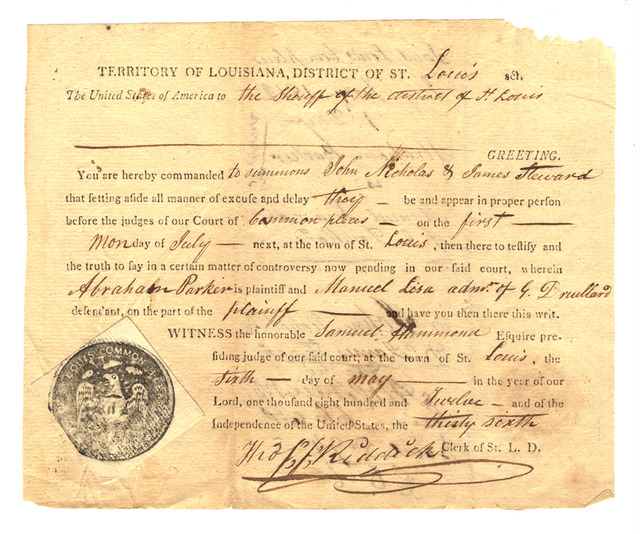 TERRITORY OF LOUISIANA, DISTRICT OF ST. Louis sct.
The United States of America to the Sheriff of the district of St. Louis
GREETING.
You are hereby commanded to summons John Nicholas & James Steward
that setting aside all manner of excuse and delay they be and appear in proper person
before the judges of our Court of Common pleas on the first
Monday of July next, at the town of St. Louis, then there to testify and
the truth to say in a certain matter of controversy now pending in our said court, wherein
Abraham Parker is plaintiff and Manuel Lisa admr. of G. Druillard
defendant, on the part of the plaintiff and have you then there this writ.
WITNESS the honorable Samuel Hammond Esquire pre-
siding judge of our said court; at the town of St. Louis, the
sixth day of may in the year of our
Lord, one thousand eight hundred and Twelve and of the
Independence of the United States, the thirty sixth
Tho F Riddick Clerk of St. L. D.
LOUIS COMMON